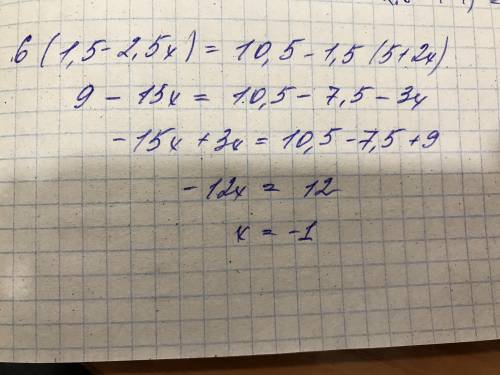 6(1,5-2,5x) = 10,5-1,5(5+2x)
9 - 15x = 10,5 - 7,5 - 3x
-15x + 3x = 10,5 - 7,5 + 9
-12x = 12
x = -1